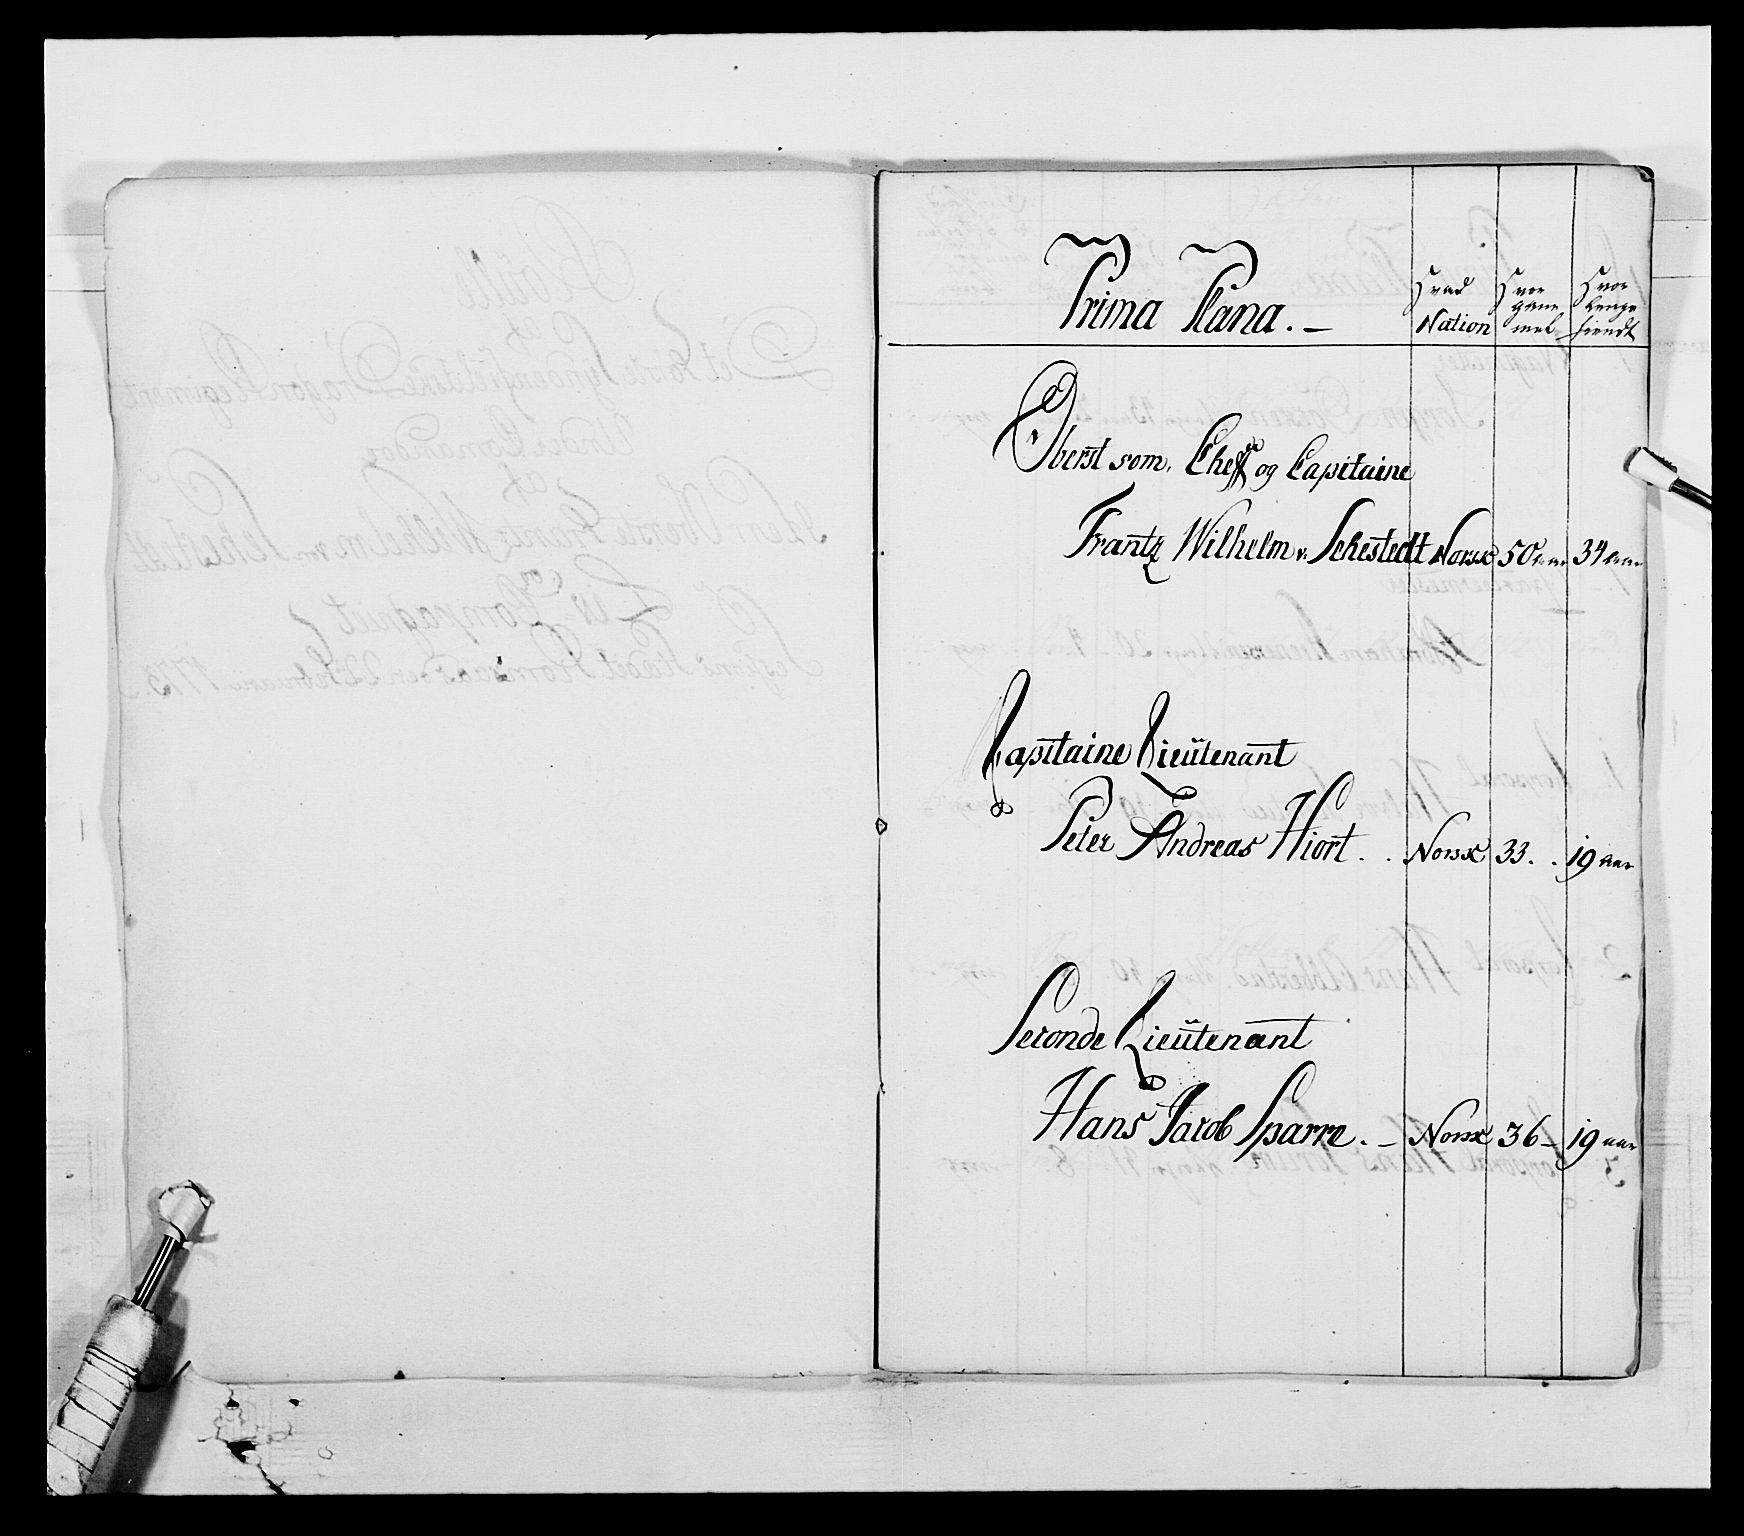 Prima Plana. —
Hvad Nation
Hvor gammel
Hvor lenge tiendt
Oberst som Cheff og Capitaine
Frantz Wilhelm v. Sehestedt Norsk 50 aar 34 aar
Capitaine Lieütenant
Peter Andreas Hiort . . Norsk 33. . 19 aar
Seconde Lieütenant
Hans Jacob Sparre. — Norsk 36 — 19 aar